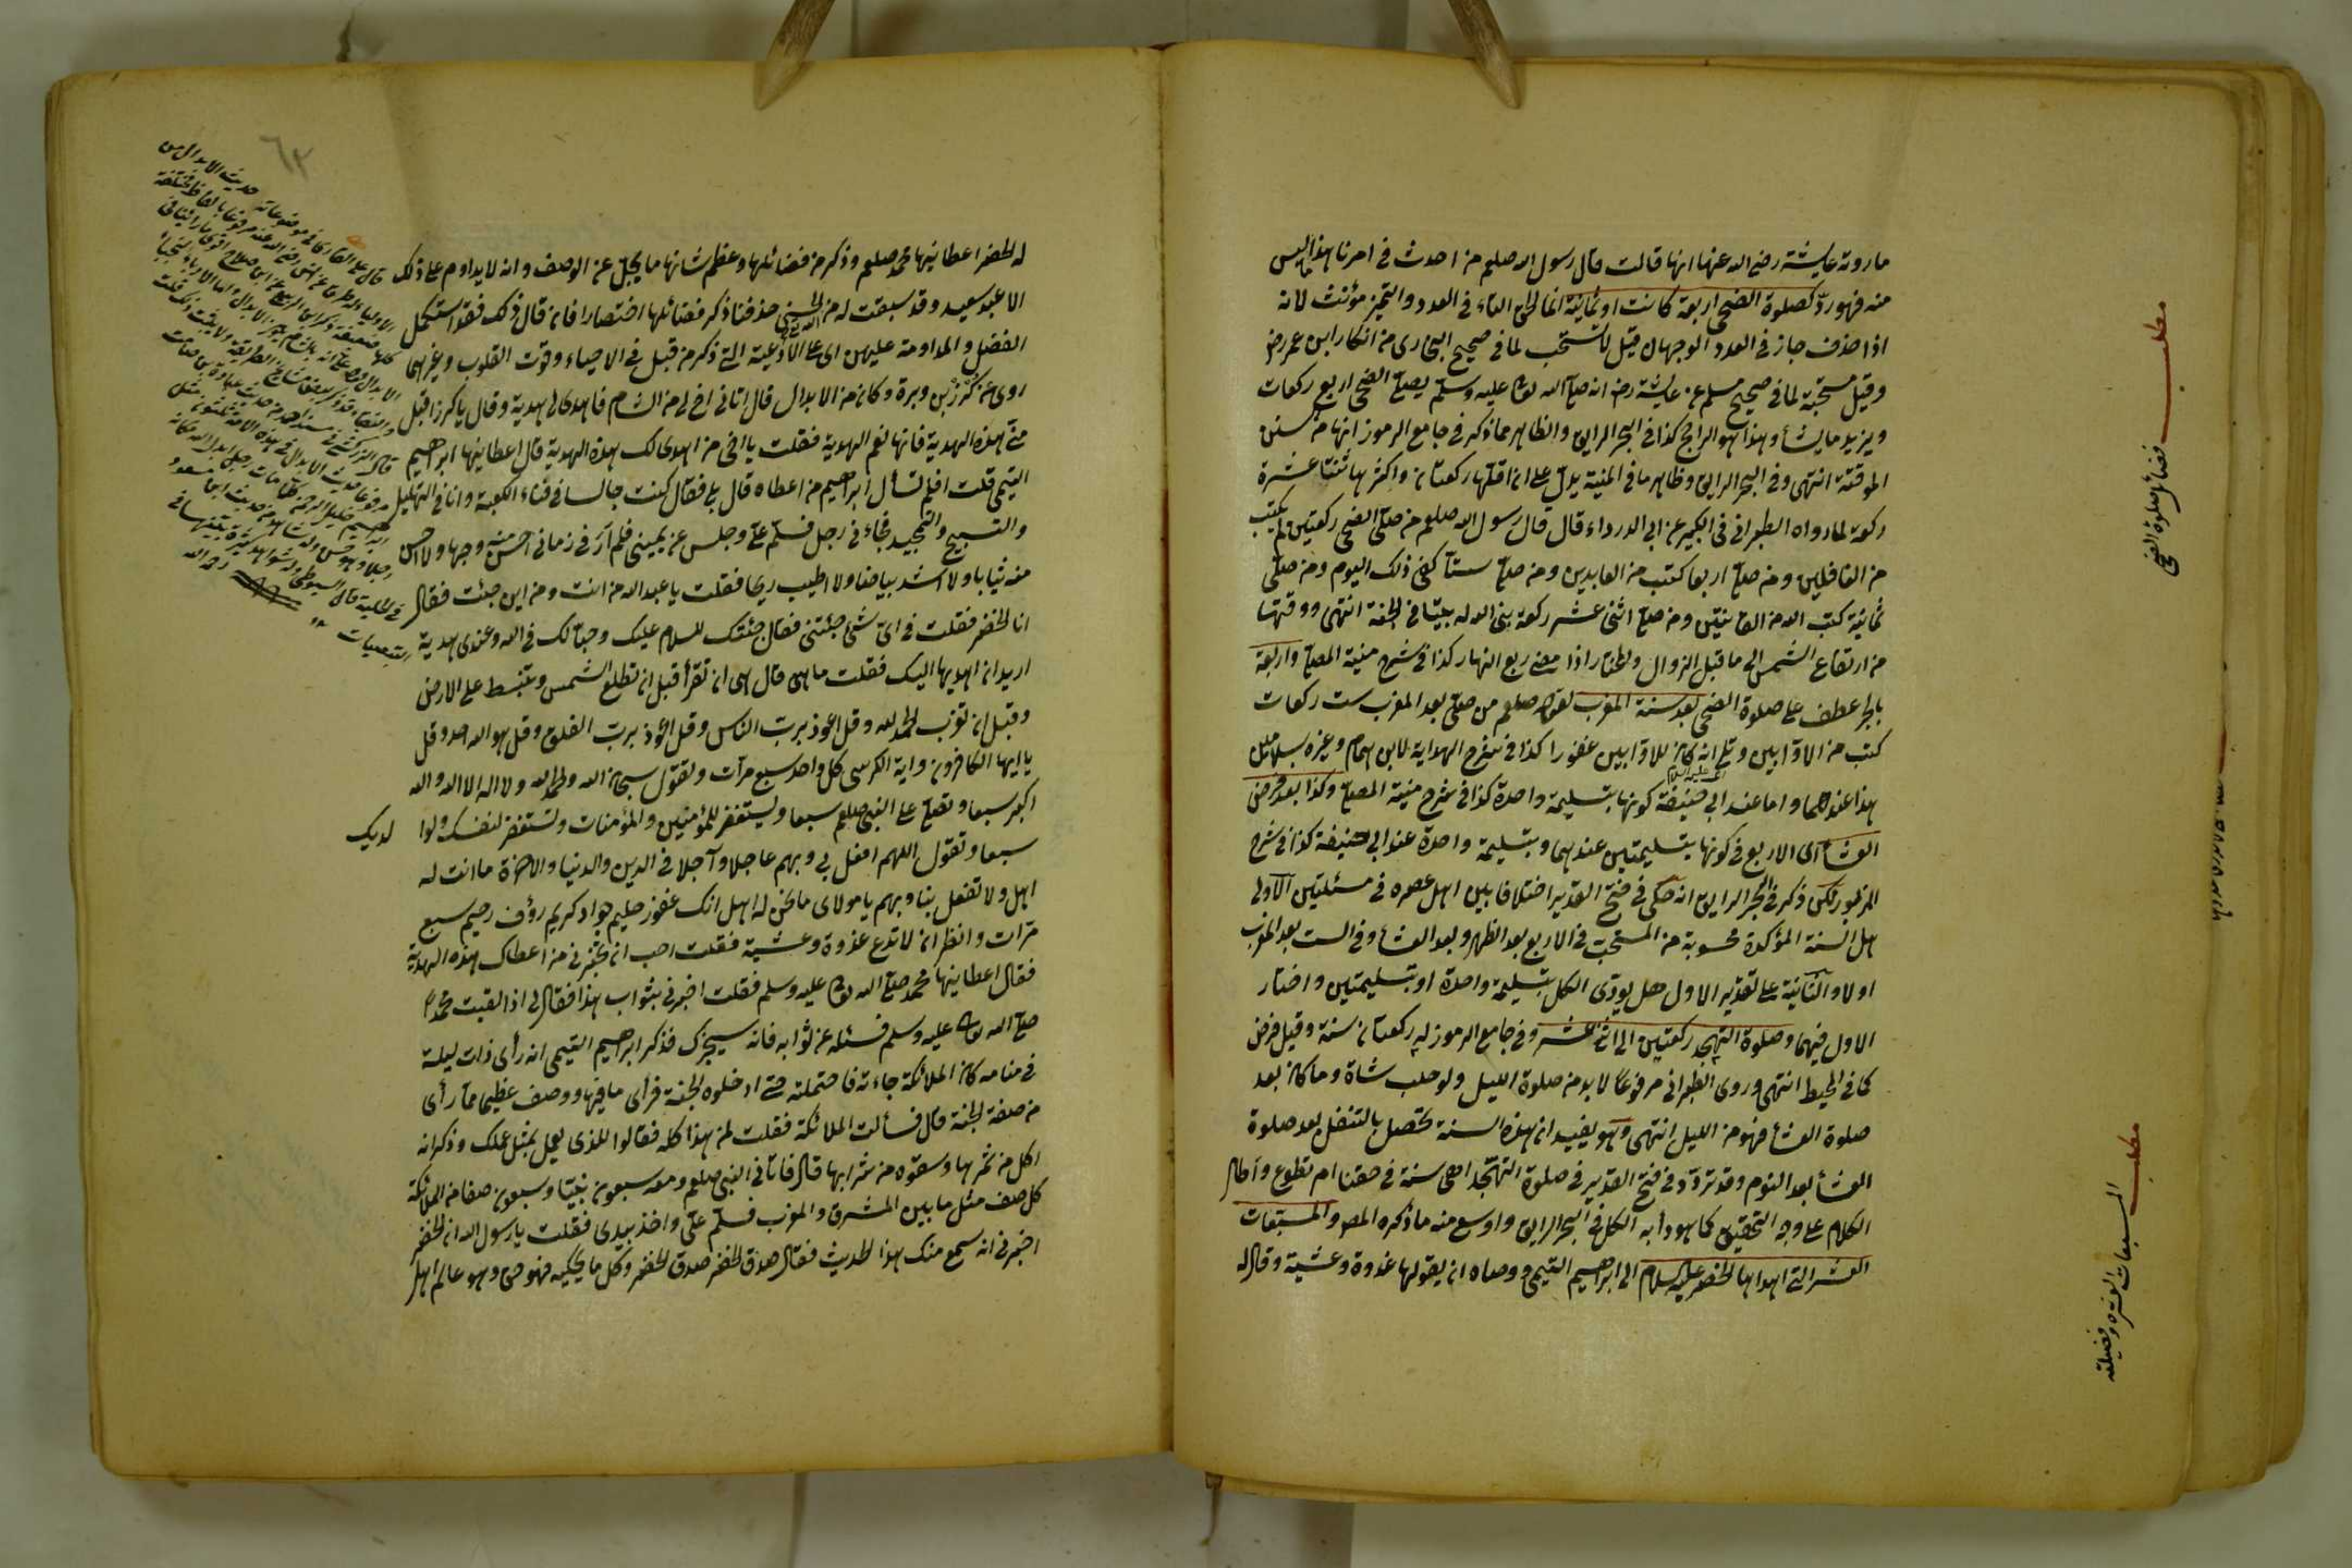 ما روته عايشة رضي الله عنها انها قالت قال رسول الله صلعم من احدث في امرنا هذا ما ليس
منه فهو ردّ كصلوة الضحى اربعة كانت او ثمانية انما الحق التاء في العدد والتميز مؤنث لانه
اذا حذف جاز في العدد الوجهان قيل لا تستحب لما في صحيح البخاري من انكار ابن عمر رض
وقيل مستحبة لما في صحيح مسلم عن عايشة رض انه صلى الله تعالى عليه وسلم يصلي الضحى اربع ركعات
ويزيد ما يشأ وهذا هو الراجح كذا في البحر الرايق والظاهر مما ذكر في جامع الرموز انها من سنن
الموقتة انتهى وفي البحر الرايق وظاهر ما في المنية يدل على ان اقلها ركعتان واكثرها ثنتا عشرة
ركعة لما رواه الطبراني في الكبير عن ابي الدرداء قال قال رسول الله صلعم من صلى الضحى ركعتين لم يكتب
من الغافلين ومن صلى اربعا كتب من العابدين ومن صلى ستا كفى ذلك اليوم ومن صلى
ثمانية كتب الله من القانتين ومن صلى اثنى عشر ركعة بنى الله له بيتا في الجنة انتهى ووقتها
من ارتفاع الشمس الى ما قبل الزوال والمختار اذا مضى ربع النهار كذا في شرح منية المصلي واربعة
بالجر عطف على صلوة الضحى بعد سنة المغرب لقوله صلعم من صلى بعد المغرب ست ركعات
كتب من الاوابين وتلى انه كان للاوابين غفورا كذا في شرح الهداية لابن الهمام وغيره بسلامين
هذا عندهما واما عند ابي حنيفة كونها بتسليمة واحدة كذا في شرح منية المصلي وكذا بعد فرض
العشأ اى الاربع في كونها بتسليمتين عندهما وبتسليمة واحدة عند ابي حنيفة كذا في شرح
المزبور لكن ذكر في البحر الرايق انه حكى في فتح القدير اختلافا بين اهل عصره في مسئلتين الاولى
هل السنة المؤكدة محسوبة من المستحب في الاربع بعد الظهر وبعد العشأ وفي الست بعد المغرب
اولا والثانية على تقدير الاول هل يودى الكل بتسليمة واحدة او بتسليمتين واختار
الاول فيهما وصلوة التهجد ركعتين الى اثنى عشر وفي جامع الرموز له ركعتان سنة وقيل فرض
كما في المحيط انتهى وروى الطبراني مرفوعًا لا بد من صلوة الليل ولو حلب شاة وما كان بعد
صلوة العشأ فهو من الليل انتهى وهو يفيد ان هذه السنة تحصل بالتنفل بعد صلوة
العشأ بعد النوم وقد تردد في فتح القدير في صلوة التهجد اهى سنة في حقنا ام تطوع واطال
الكلام على وجه التحقيق كما هو دأبه الكل في البحر الرايق واوسع منه ما ذكره المص والمسبعات
العشر التي اهداها الخضر عليه السلام الى ابراهيم التيمي ووصاه ان يقولها غدوة وعشية وقال له
مطلب
فضائل صلوة الضحى
مطلب
المسبعات العشره وفضيلته
له الخضر اعطانيها محمد صلعم وذكر من فضائلها وعظم شانها ما يجل عن الوصف وانه لا يداوم على ذلك
الا عبد سعيد وقد سبقت له من الله الحسنى حذفنا ذكر فضائلها اختصارا فان قال ذلك فقد استكمل
الفضل والمداومة عليهن اى على الادعية التي ذكر من قبل في الاحياء وقوت القلوب وغيرهما
روى عن كرز بن وبرة وكان من الابدال قال اتاني اخ لي من الشام فاهدى لي هدية وقال يا كرز اقبل
منى هذه الهدية فانها نعم الهدية فقلت يا اخي من اهدى لك هذه الهدية قال اعطانيها ابراهيم
التيمي قلت افلم تسأل ابراهيم من اعطاه قال بلى فقال كنت جالسا في فناء الكعبة وانا في التهليل
والتسبيح والتمجيد فجاءني رجل فسلم علي وجلس عن يميني فلم ار في زماني احسن منه وجها ولا احسن
منه ثيابا ولا اشد بياضا ولا اطيب ريحا فقلت يا عبد الله من انت ومن اين جئت فقال
انا الخضر فقلت في اى شئ جئتني فقال جئتك للسلام عليك وحبا لك في الله وعندى هدية
اريد ان اهديها اليك فقلت ما هي قال هي ان تقرأ قبل ان تطلع الشمس وتنبسط على الارض
وقبل ان تغرب الحمد لله وقل اعوذ برب الناس وقل اعوذ برب الفلق وقل هو الله احد وقل
يا ايها الكافرون واية الكرسي كل واحد سبع مرات وتقول سبحان الله والحمد لله ولا اله الا الله والله
اكبر سبعا وتصلى على النبي صلعم سبعا وتستغفر للمؤمنين والمؤمنات وتستغفر لنفسك ولوا
لديك
سبعا وتقول اللهم افعل بي وبهم عاجلا وآجلا في الدين والدنيا والاخرة ما انت له
اهل ولا تفعل بنا وبهم يا مولاى ما نحن له اهل انك غفور حليم جواد كريم رؤف رحيم سبع
مرات وانظر ان لا تدع غدوة وعشية فقلت احب ان تخبرني من اعطاك هذه الهدية
فقال اعطانيها محمد صلى الله تعالى عليه وسلم فقلت اخبرني بثواب هذا فقال لي اذا لقيت محمدا
صلى الله تعالى عليه وسلم فسئله عن ثوابه فانه سيخبرك فذكر ابراهيم التيمي انه رأى ذات ليلة
في منامه كان الملائكة جاءته فاحتملته حتى ادخلوه الجنة فرأى ما فيها ووصف عظيما مما رأى
من صفة الجنة قال فسألت الملائكة فقلت لمن هذا كله فقالوا للذى يعمل بمثل عملك وذكر انه
اكل من ثمرها وسقوه من شرابها قال فاتاني النبي صلعم ومعه سبعون نبيا وسبعون صفا من الملائكة
كل صف مثل ما بين المشرق والمغرب فسلم علي واخذ بيدى فقلت يا رسول الله ان الخضر
اخبرني انه سمع منك هذا الحديث فقال صدق الخضر صدق الخضر وكل ما يحكيه فهو حق وهو عالم اهل
٦٣
قال على القارى في موضوعاته حديث الابدال من